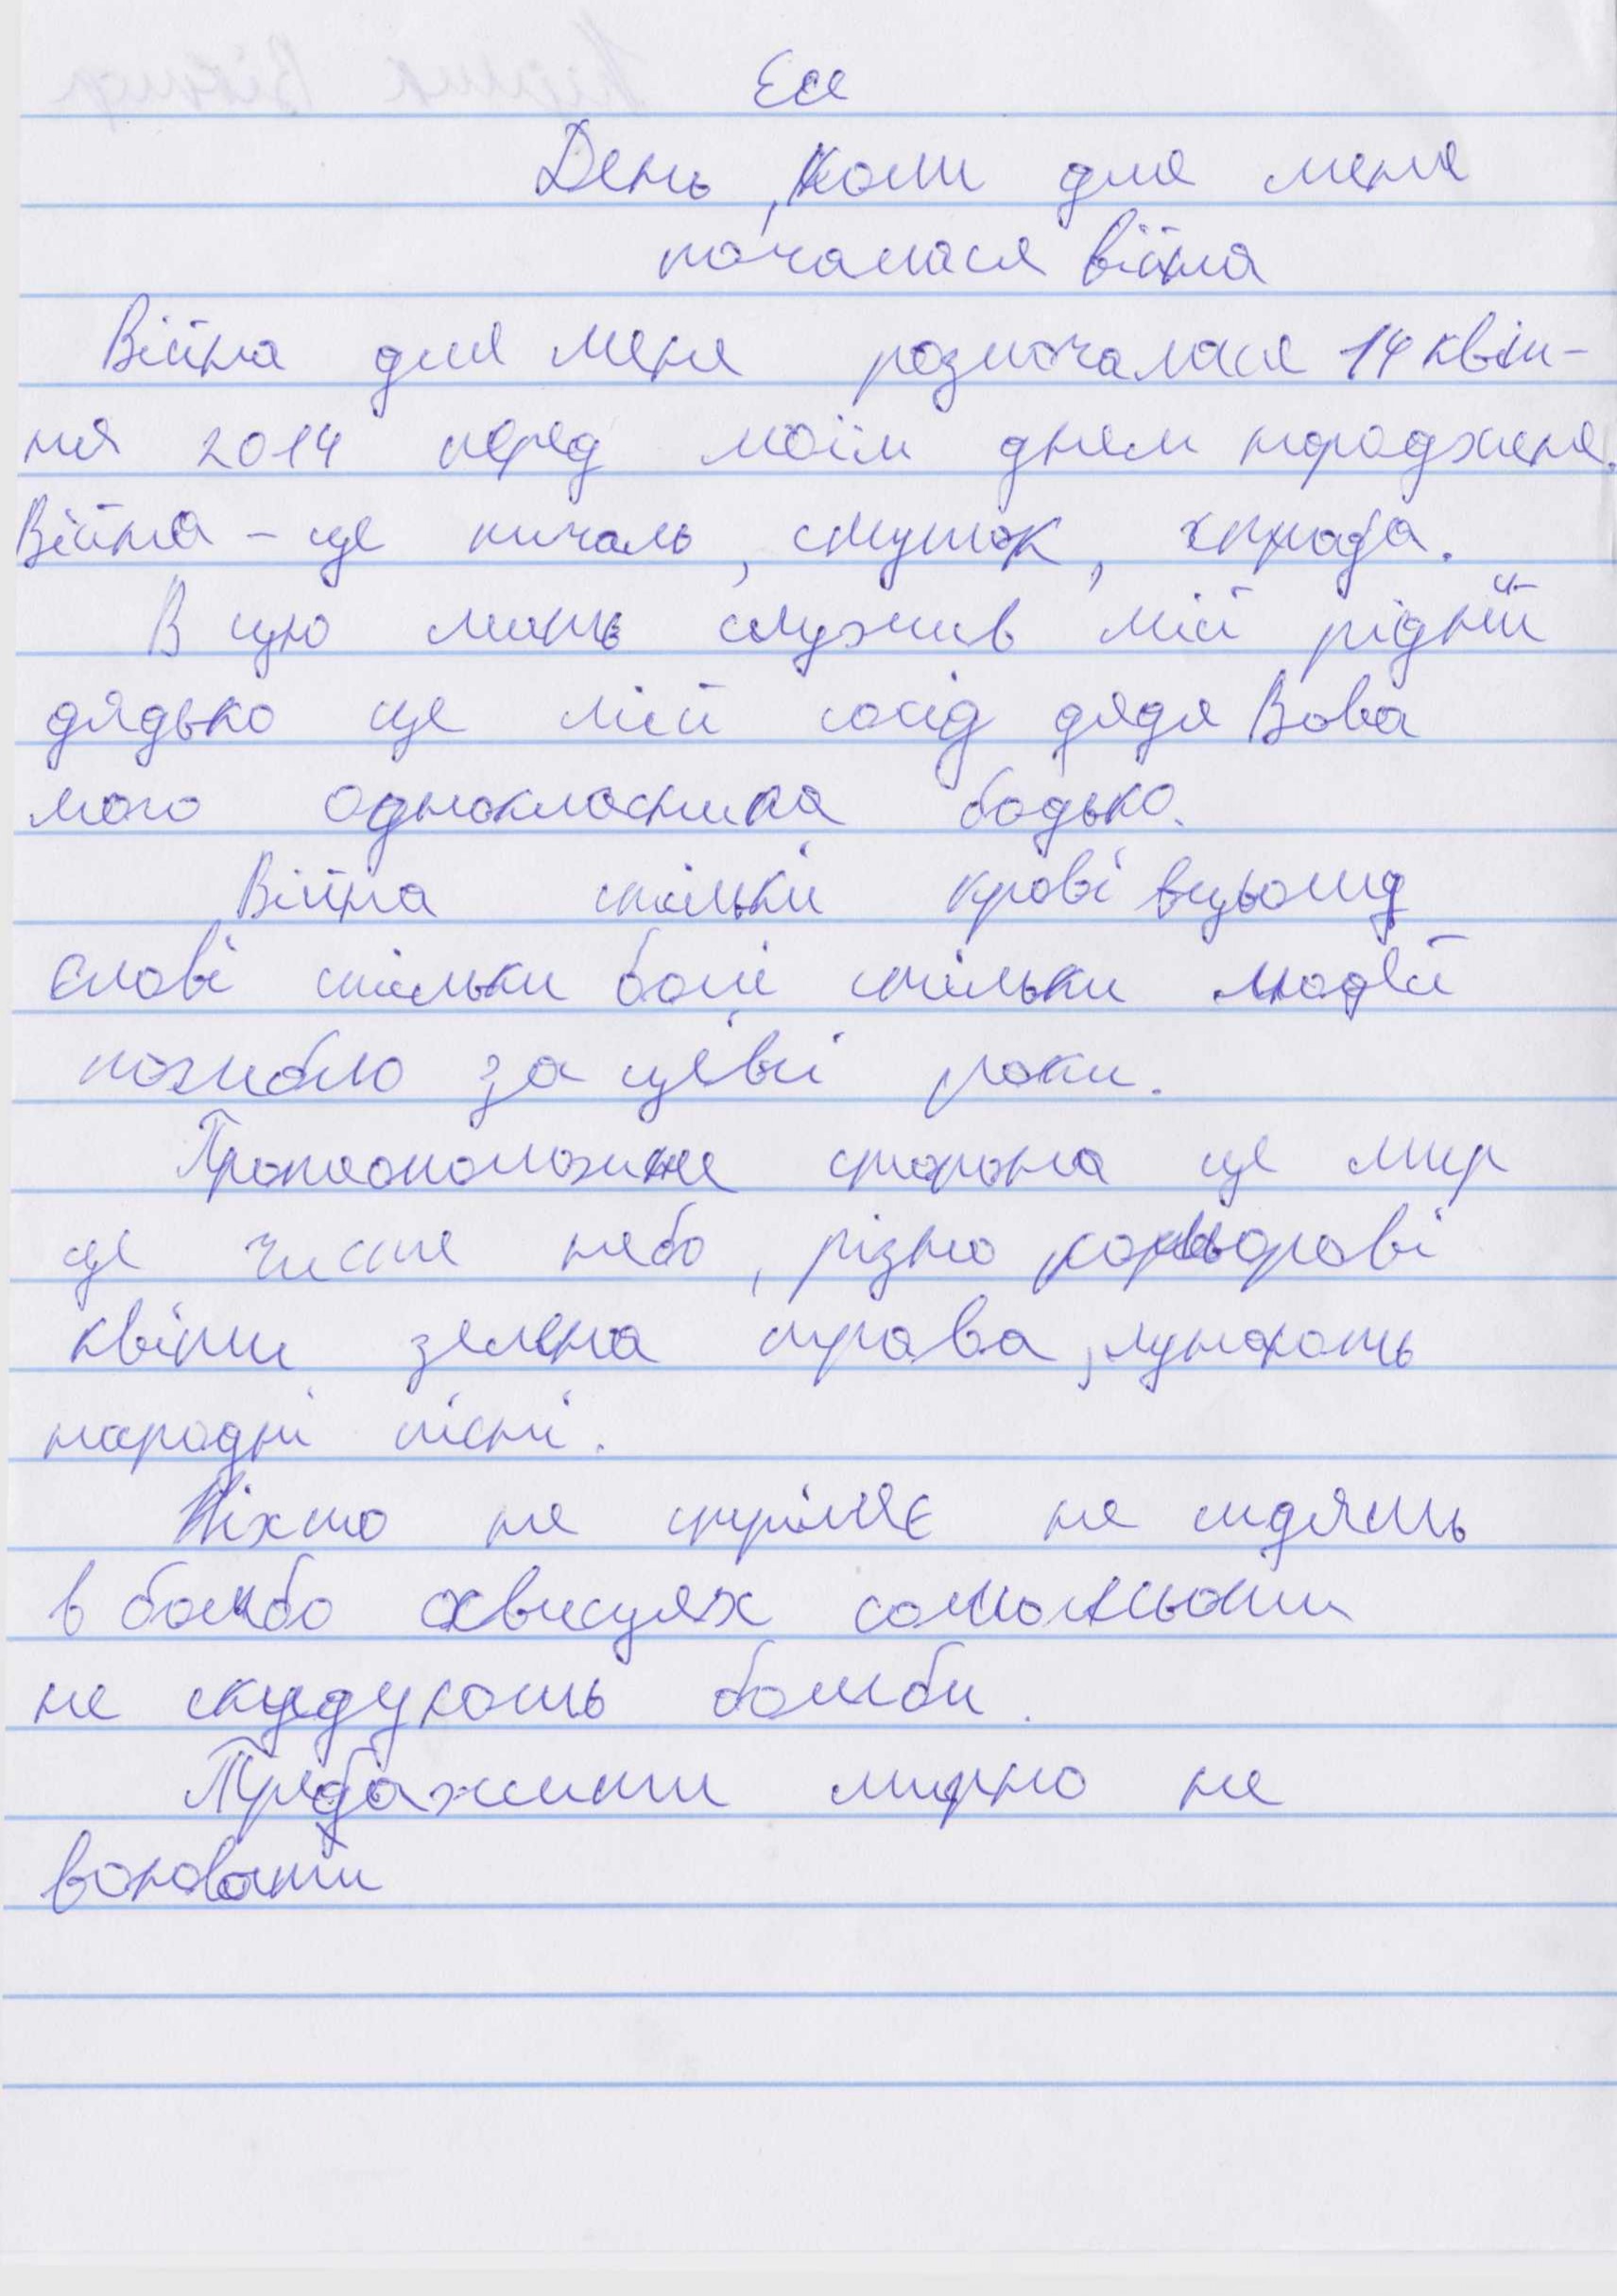 Есе
День, коли для мене
почалася війна
Війна для мене розпочалася 14 квіт-
ня 2014 перед моїм днем народженя.
Війна - це пичаль, смуток,
В цю мить служив мій рідний
дядько це мій сосід дядя Вова
мого однокласника бадько.
Війна стільки крові вцьому
слові стільки болі стільки людей
погибло за ці ві роки.
Протеоположне сторона це мир
це чисте небо, різно кольорові
квіти зелена трава, лунають
народні пісні.
Ніхто не стріляє не сидять
в бомбо схвищях самольоти
не скидують бомби.
Требажити мирно не
воювати